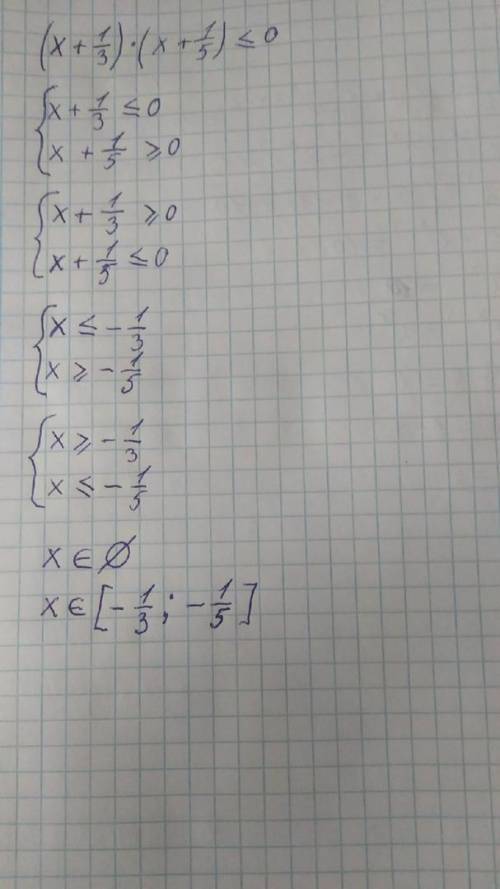 (x + 1/3) · (x + 1/5) ≤ 0
{ x + 1/3 ≤ 0
x + 1/5 ≥ 0
{ x + 1/3 ≥ 0
x + 1/5 ≤ 0
{ x ≤ - 1/3
x ≥ - 1/5
{ x ≥ - 1/3
x ≤ - 1/5
x ∈ ∅
x ∈ [- 1/3 ; - 1/5]